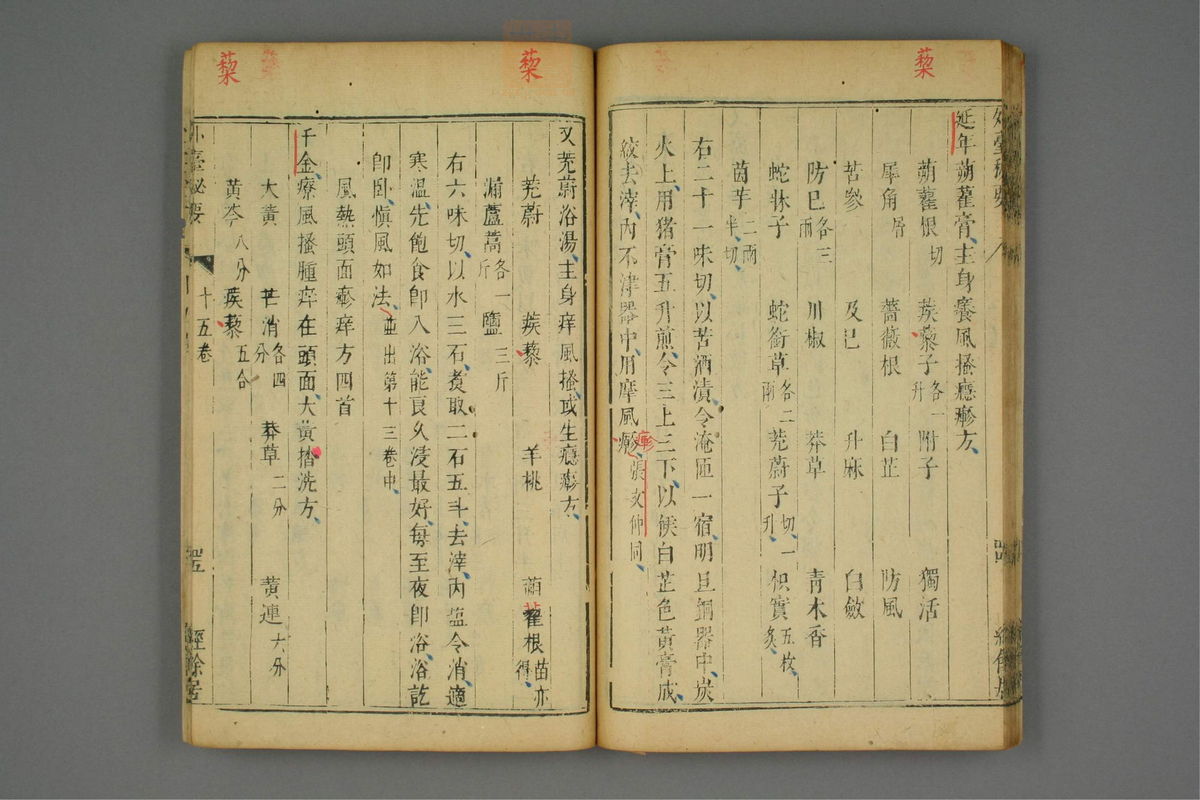 藜
延年蒴藋膏主身癢風搔癮疹方
蒴藋根切 蒺藜子各一升 附子 獨活
犀角屑 薔薇根 白芷 防風
苦參 及巳 升麻 白斂
防巳各三兩 川椒 莽草 青木香
蛇牀子 蛇銜草各二兩 茺蔚子切一升 枳實五枚炙
茵芋二兩半切
右二十一味切以苦酒漬令淹匝一宿明旦銅器中炭
火上用猪膏五升煎令三上三下以候白芷色黃膏成
絞去滓內不津器中用摩風瘮張文仲同
疹
藜
又茺蔚浴湯主身痒風搔或生癮瘮方
茺蔚 蒺藜 羊桃 蒴藋根苗亦得
漏蘆蒿各一斤 鹽三斤
右六味切以水三石煮取二石五斗去滓內盐令消適
寒溫先飽食卽入浴能良久浸最好每至夜卽浴浴訖
卽卧愼風如法並出第十三卷中
風熱頭面瘮痒方四首
千金療風搔腫痒在頭面大黃搨洗方
大黃 芒消各四分 莽草二分 黃連六分
黃芩八分 蒺藜五合
十五卷
藜
經餘居